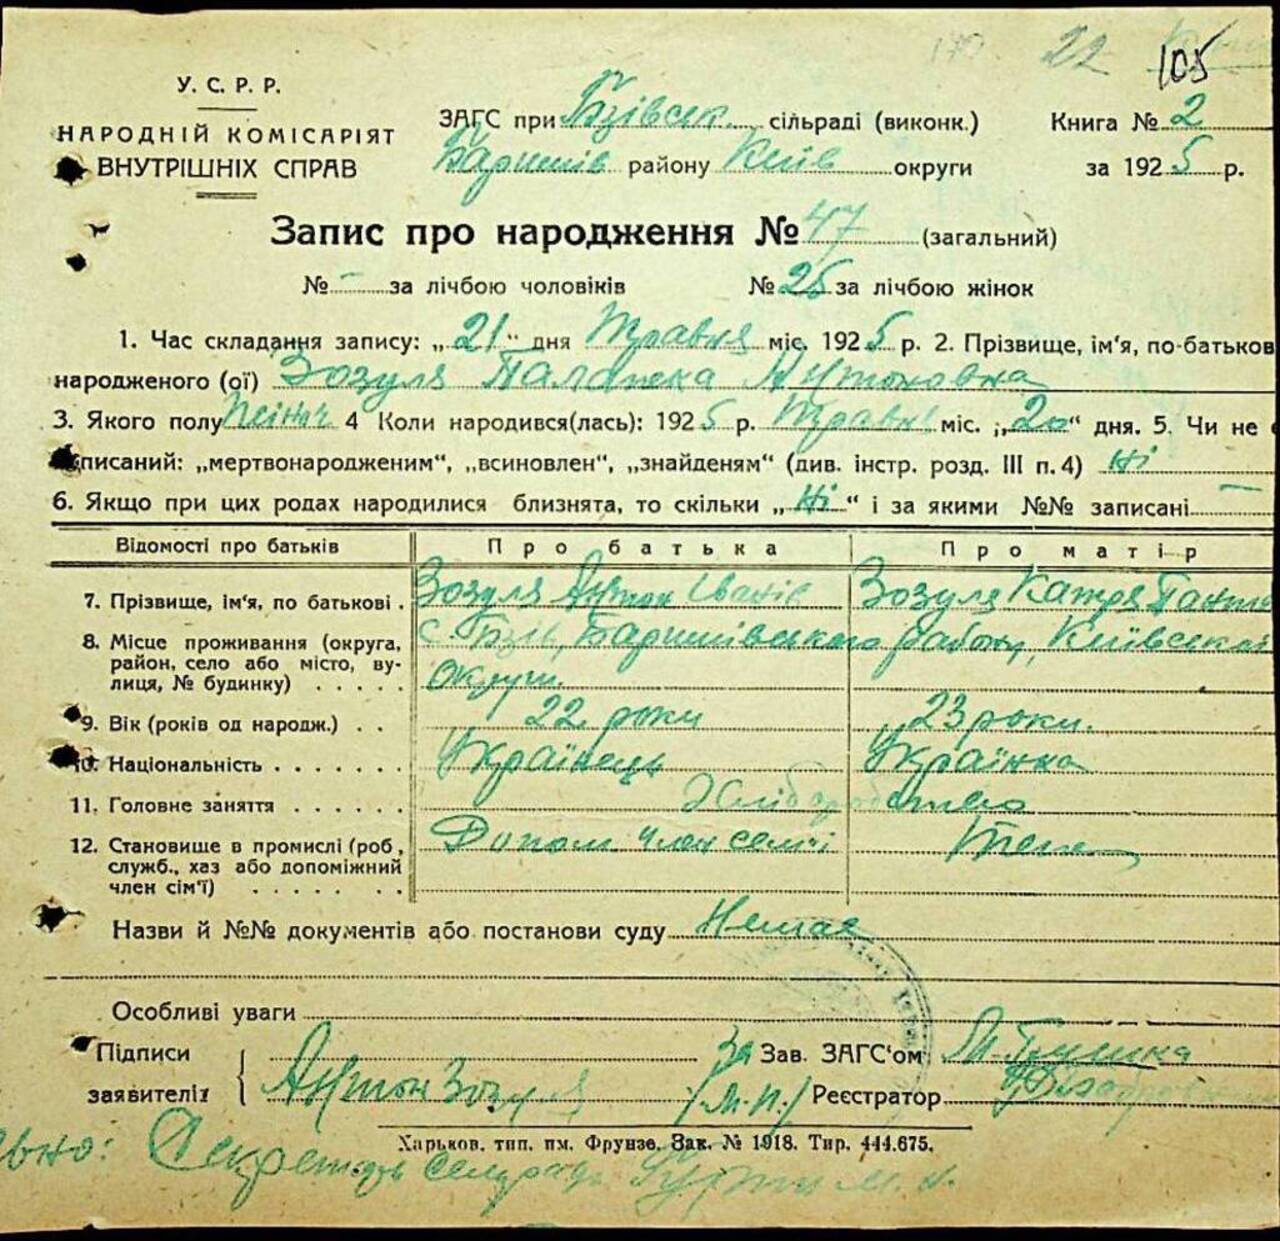 22 105
У. С. Р. Р.
НАРОДНІЙ КОМІСАРІЯТ
ВНУТРІШНІХ СПРАВ
ЗАГС при Бзівськ. сільраді (виконк.)
Баришів району Київ округи
Книга № 2
за 1925 р.
Запис про народження № 47 (загальний)
№ - за лічбою чоловіків № 25 за лічбою жінок
1. Час складання запису: „21“ дня Травня міс. 1925 р. 2. Прізвище, ім'я, по-батьков
народженого (ої) Зозуля Палажка Антоновна
3. Якого полу жіноч 4 Коли народився(лась): 1925 р. Травня міс. „20“ дня. 5. Чи не є
записаний: „мертвонародженим“, „всиновлен“, „знайденям“ (див. інстр. розд. III п. 4) Ні
6. Якщо при цих родах народилися близнята, то скільки „Ні“ і за якими №№ записані —
Відомості про батьків Про батька Про матір
7. Прізвище, ім'я, по батькові . Зозуля Антон Іванів Зозуля Катря
8. Місце проживання (округа, с. Бзів, Баришівського району, Київської
район, село або місто, ву-
лиця, № будинку) . . . . . Округи.
9. Вік (років од народж.) . . 22 роки 23 роки.
10. Національність . . . . . . . Українець Українка
11. Головне заняття . . . . . . Хліборобство
12. Становище в промислі (роб., Допом. член семї Теж
служб., хаз або допоміжний
член сім'ї) . . . . . . .
Назви й №№ документів або постанови суду Немає
Особливі уваги
Підписи
заявителів Антон Зозуля
За Зав. ЗАГС'ом М.
/М.П./ Реєстратор
Харьков. тип. им. Фрунзе. Зак. № 1918. Тир. 444.675.
ьно: Секретарь сельради